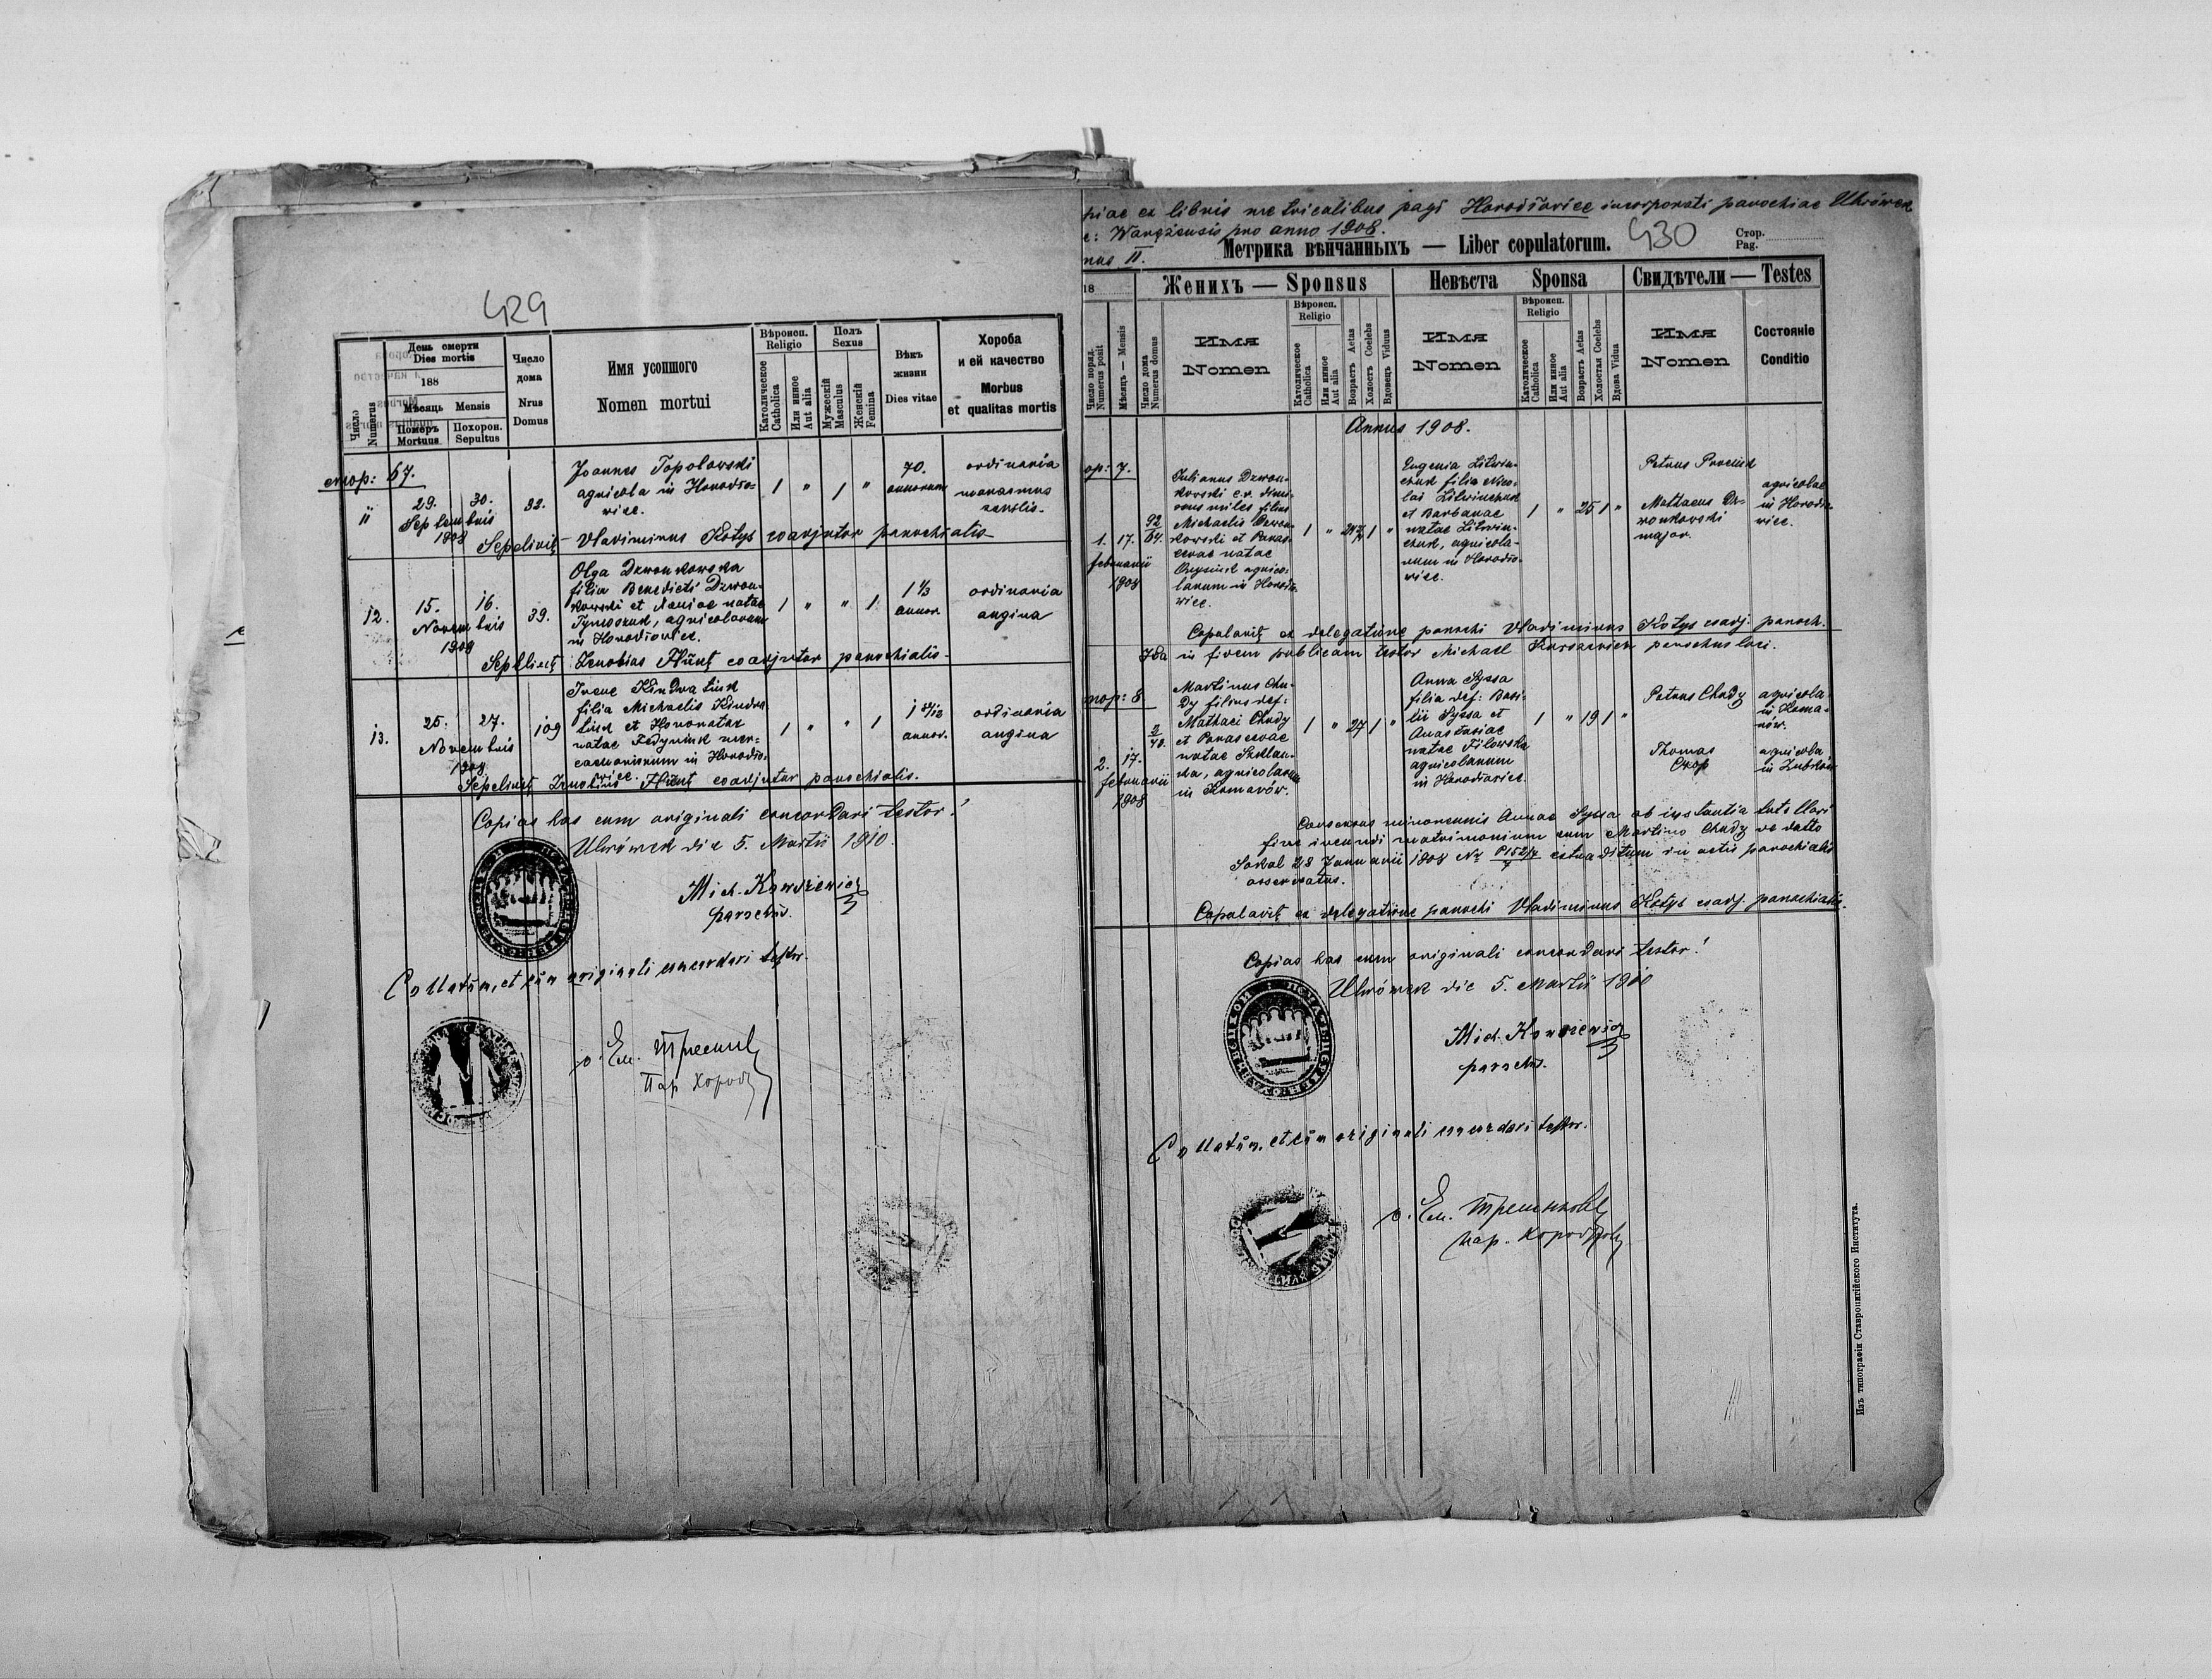 429
День смерти
Dies mortis
188
Мѣсяць Mensis
Число
Numerus
Померъ
Mortuus
Похорон.
Sepultus
Число
дома
Nrus
Domus
Имя усопшого
Nomen mortui
Вѣроисп.
Religio
Католическое
Catholica
Или инное
Aut alia
Полъ
Sexus
Мужескій
Masculus
Женскій
Femina
Вѣкъ
жизни
Dies vitae
Хороба
и ей качество
Morbus
et qualitas mortis
стор: 67.
11
29. 30.
Septembris
1908
92.
Joannes Topolowski
agricola in Horodło-
wice.
1 " 1 "
70.
annorum
ordinaria
marasmus
senilis
Sepelivit Vladimirus Kotys coadjutor parochialis
12.
15. 16.
Novembris
1908
39.
Olga Dzwonkowska
filia Benedicti Dzwon-
kowski et Xeniae natae
Tymoszuk, agricolarum
in Horodłowice.
1 " " 1
1 1/3
annor.
ordinaria
angina
Sepelivit Zenobius coadjutor parochialis
13.
25. 27.
Novembris
1908
109
Irene Kindratiuk
filia Michaelis Kindra-
tiuk et Honoratae
natae Fedyniuk mer-
cenariorum in Horodło-
wice.
1 " " 1
annor.
ordinaria
angina
Sepelivit Zenobius coadjutor parochialis.
Copias has cum originali concordari testor!
Uhrynów die 5. Martii 1910.
parochus.
Collatum, et cum originali concordari testor.
о. Ем.
Пар.
piae ex libris metricalibus pagi Horodłowice incorporati parochiae
Warężensis pro anno 1908.
nus II.
Метрика вѣнчанныхъ — Liber copulatorum.
430
Стор.
Pag.
18
Число поряд.
Numerus posit
Мѣсяць — Mensis
Число дома
Numerus domus
Женихъ — Sponsus
Имя
Nomen
Вѣроисп.
Religio
Католическое
Catholica
Или инное
Aut alia
Возрасть Aetas
Холость Coelebs
Вдовець Viduus
Невѣста Sponsa
Имя
Nomen
Вѣроисп.
Religio
Католическое
Catholica
Или инное
Aut alia
Возрасть Aetas
Холостая Coelebs
Вдова Vidua
Свидѣтели — Testes
Имя
Nomen
Состоянiе
Conditio
Annus 1908.
ор: 7.
1. 17.
februarii
1908
92
64.
Julianus Dzwon-
kowski c.r. dimi-
ssus miles filius
Michaelis Dzwon-
kowski et Paras-
cevae natae
agrico-
larum in Horodło-
wice.
1 "
1 "
Eugenia Litwin-
chuk filia Nico-
lai Litwinchuk
et Barbarae
natae Litwin-
chuk, agricola-
rum in Horodło-
wice.
1 " 25 1 "
Petrus
Mathaeus Dz-
wonkowski
major.
agricolae
in Horodło-
wice.
Copulavit ex delegatione parochi Vladimirus Kotys coadj. paroch.
in fidem publicam testor Michael parochus loci.
стор: 8
2. 17.
februarii
1908
2
40.
Martinus Chu-
dy filius def:
Mathaei Chudy
et Parascevae
natae Szklan-
ka, agricolarum
in Komarów.
1 " 27 1 "
Anna Syssa
filia def: Basi-
lii Syssa et
Anastasiae
natae Filowska
agricolarum
in Horodłowice.
1 " 19 1 "
Petrus Chudy
agricola
in Koma-
rów.
Thomas
agricola
in Zubków
Consensus minorennis Annae Syssa ab instantia tutellari
fine ineundi matrimonium cum Martino Chudy de datto
Sokal 28 Januarii 1908 No extraditum in actis parochialis
asservatus.
Copulavit ex delegatione parochi Vladimirus Kotys coadj. parochialis.
Copias has cum originali concordari testor!
Uhrynów die 5. Martii 1910
parochus.
Collatum, et cum originali concordari testor.
о. Ем.
пар.
Изъ типографіи Ставропигійского Института.